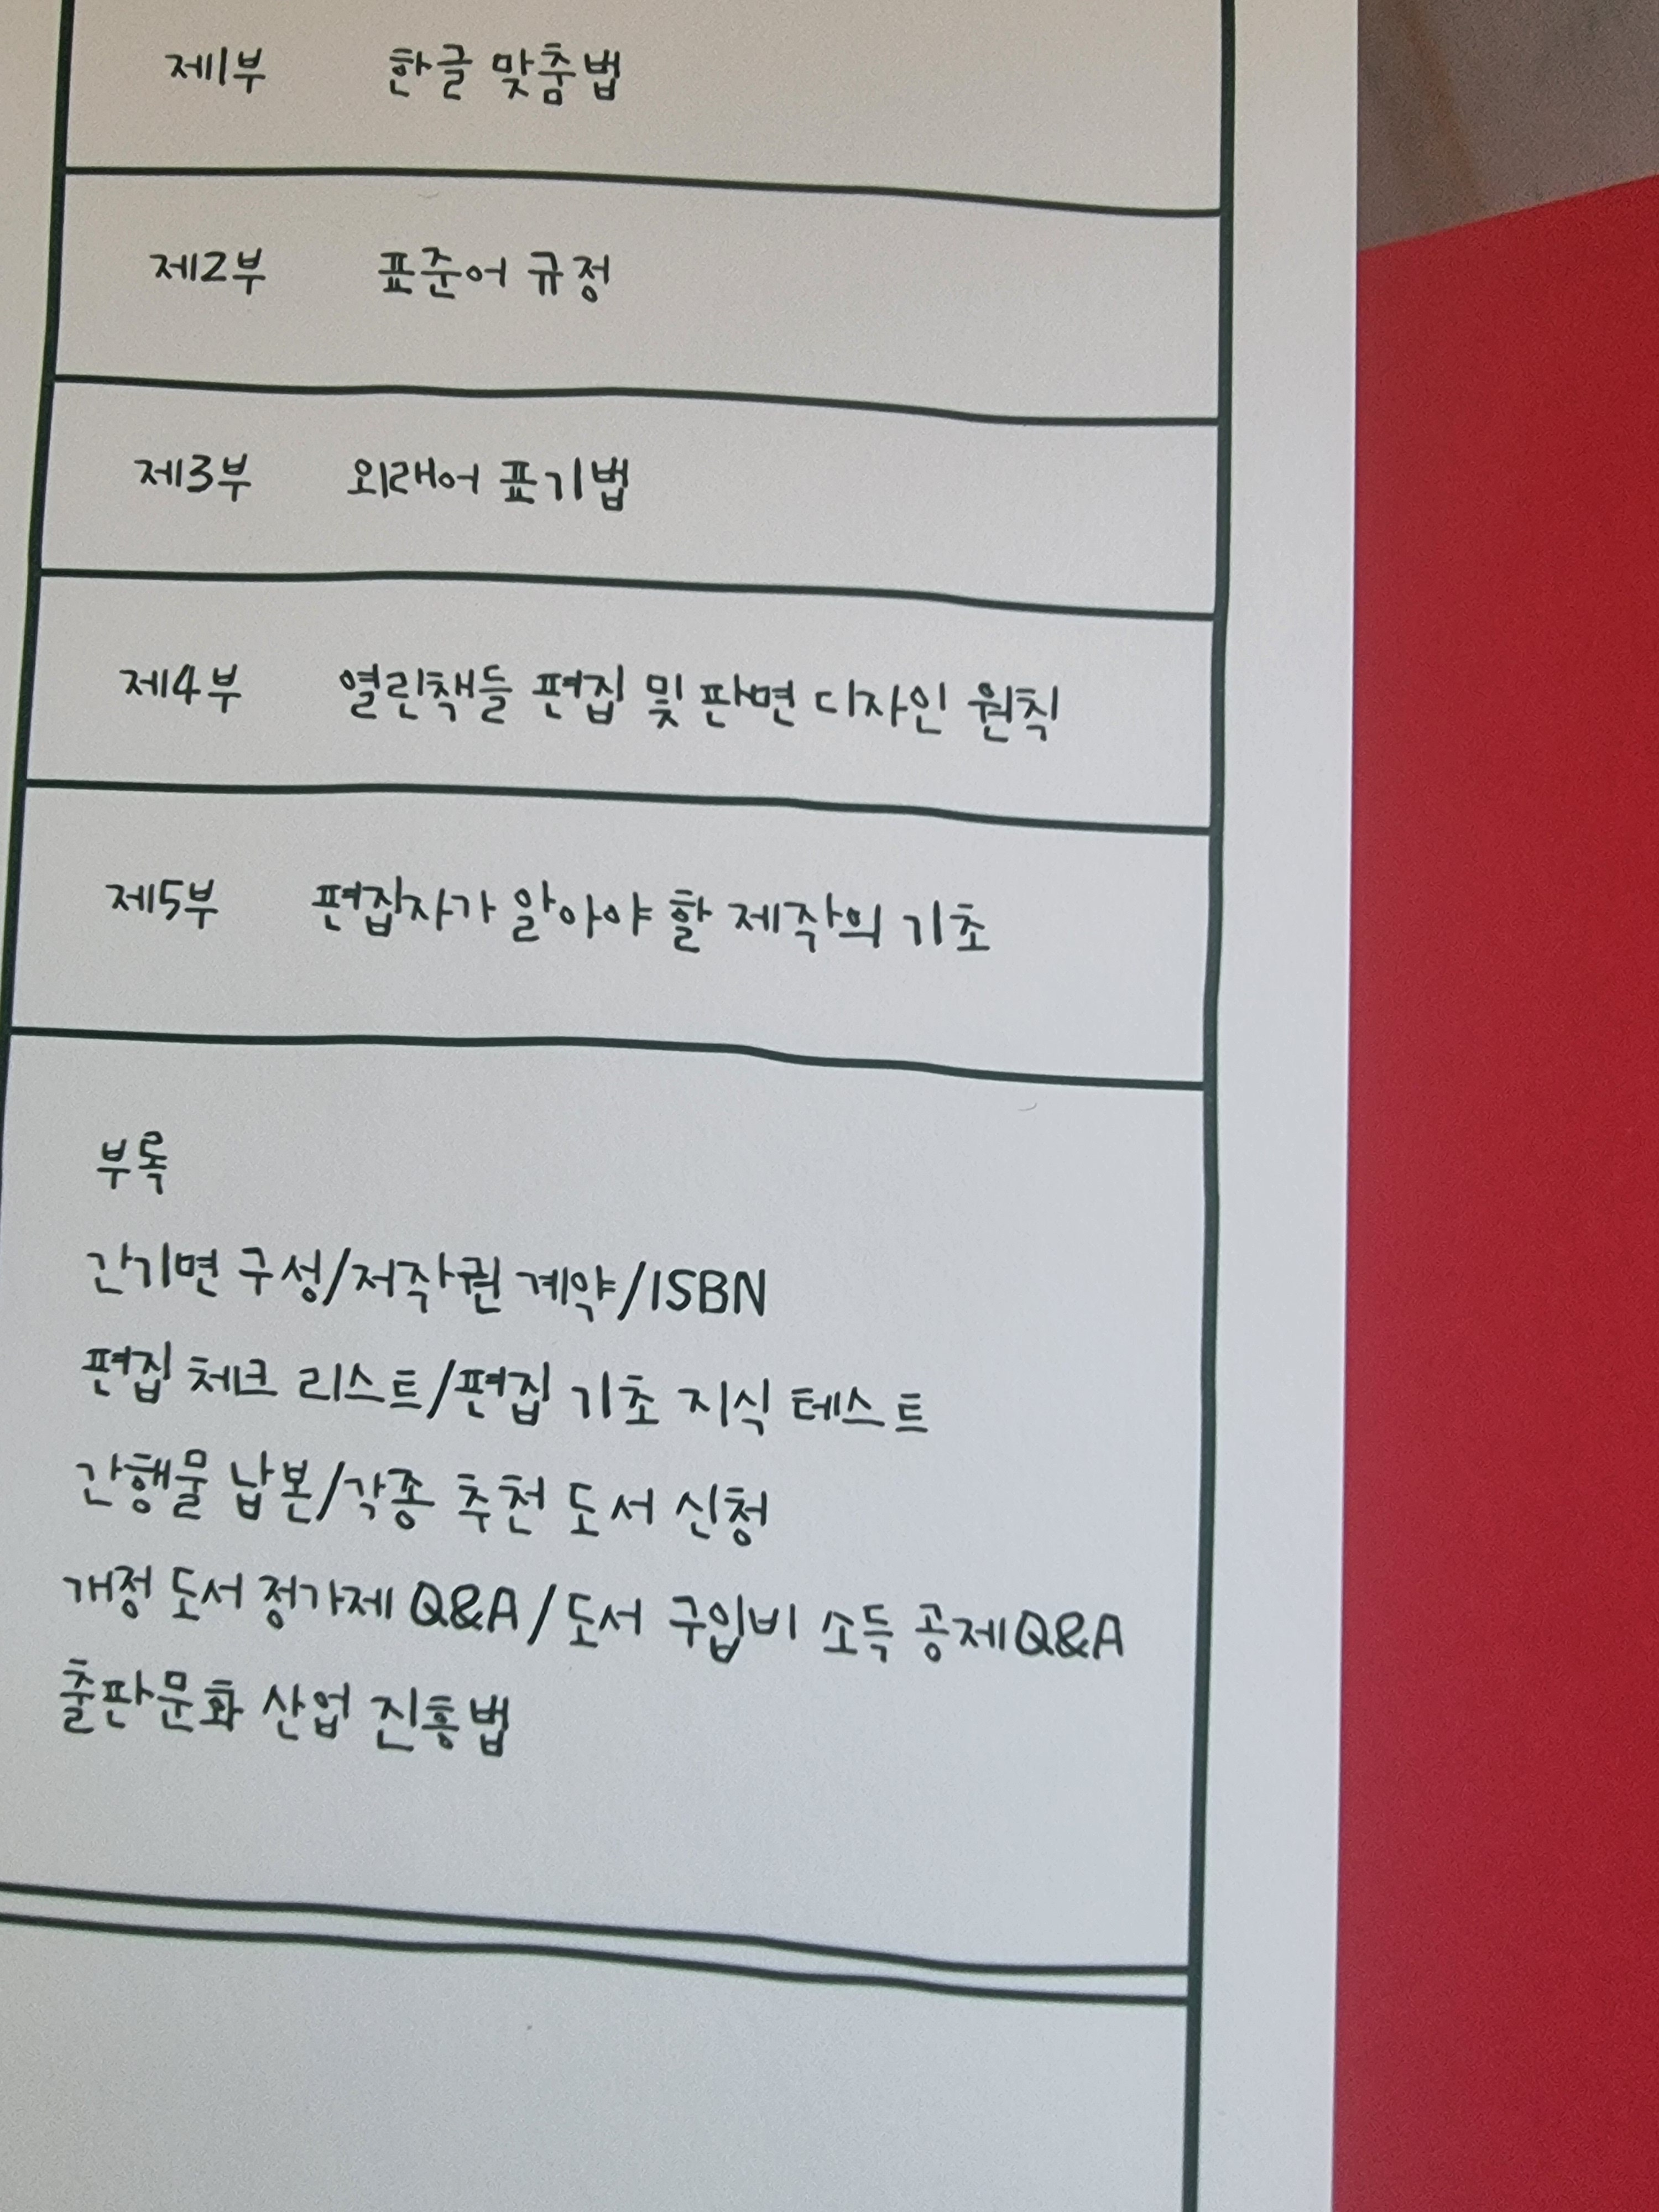 제1부 한글 맞춤법
제2부 표준어 규정
제3부 외래어 표기법
제4부 열린책들 편집 및 판면 디자인 원칙
제5부 편집자가 알아야 할 제작의 기초
부록
간기면 구성/저작권 계약/ISBN
편집 체크 리스트/편집 기초 지식 테스트
간행물 납본/각종 추천 도서 신청
개정 도서 정가제 Q&A/도서 구입비 소득 공제 Q&A
출판문화 산업 진흥법